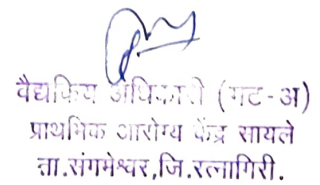 वैद्यकिय अधिकारी (गट-अ)
प्राथमिक आरोग्य केंद्र सायले
ता.संगमेश्वर,जि.रत्नागिरी.